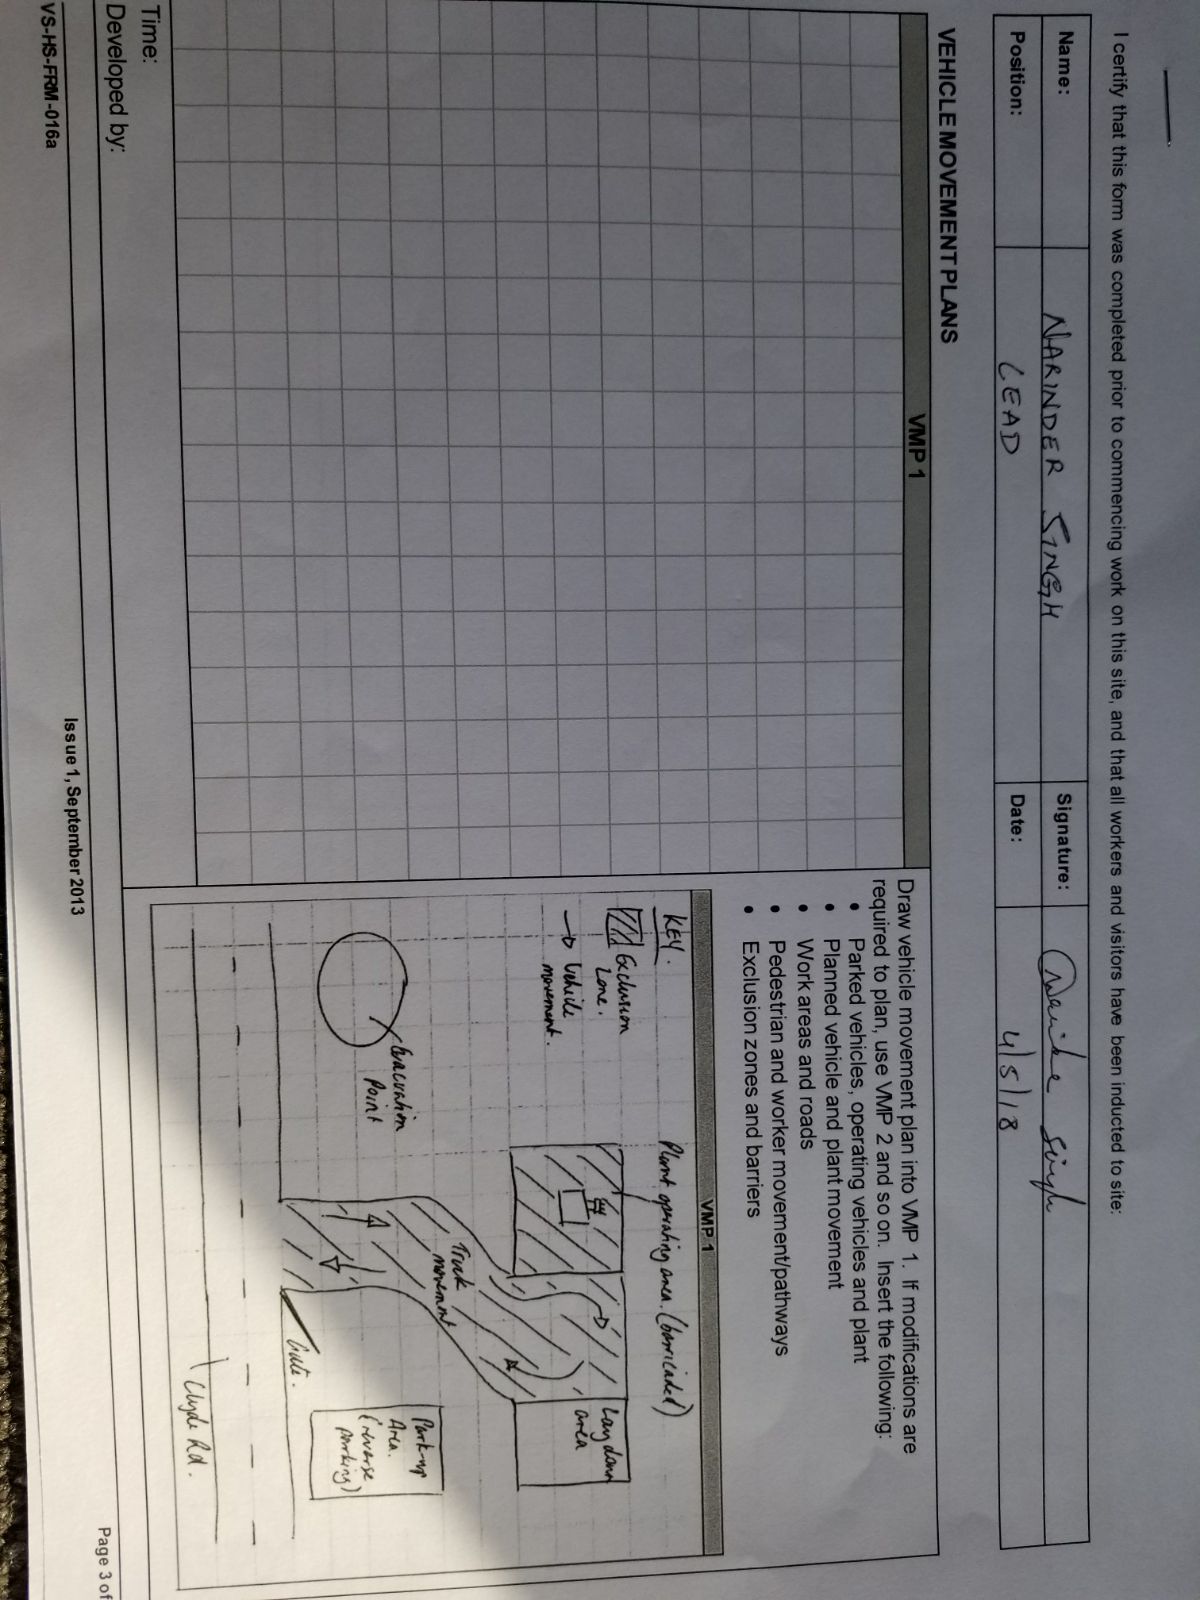 I certify that this form was completed prior to commencing work on this site, and that all workers and visitors have been inducted to site:
Name: NARINDER SINGH Signature:
Position: LEAD Date: 4/5/18
VEHICLE MOVEMENT PLANS
VMP 1
Draw vehicle movement plan into VMP 1. If modifications are
required to plan, use VMP 2 and so on. Insert the following:
• Parked vehicles, operating vehicles and plant
• Planned vehicle and plant movement
• Work areas and roads
• Pedestrian and worker movement/pathways
• Exclusion zones and barriers
VMP 1
KEY.
Exclusion
Zone.
Vehicle
movement.
Plant operating area. (barricaded)
Laydown
area
Truck
movement
Evacuation
Point
Park-up
Area.
(reverse
parking)
Gate.
Clyde Rd.
Time:
Developed by:
VS-HS-FRM-016a
Issue 1, September 2013
Page 3 of